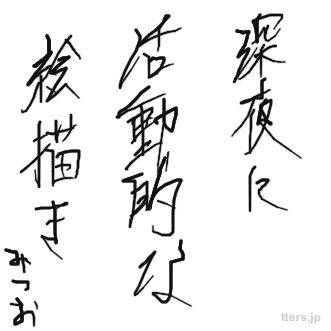 深夜に
活動的な
絵描き
みつお
tters.jp